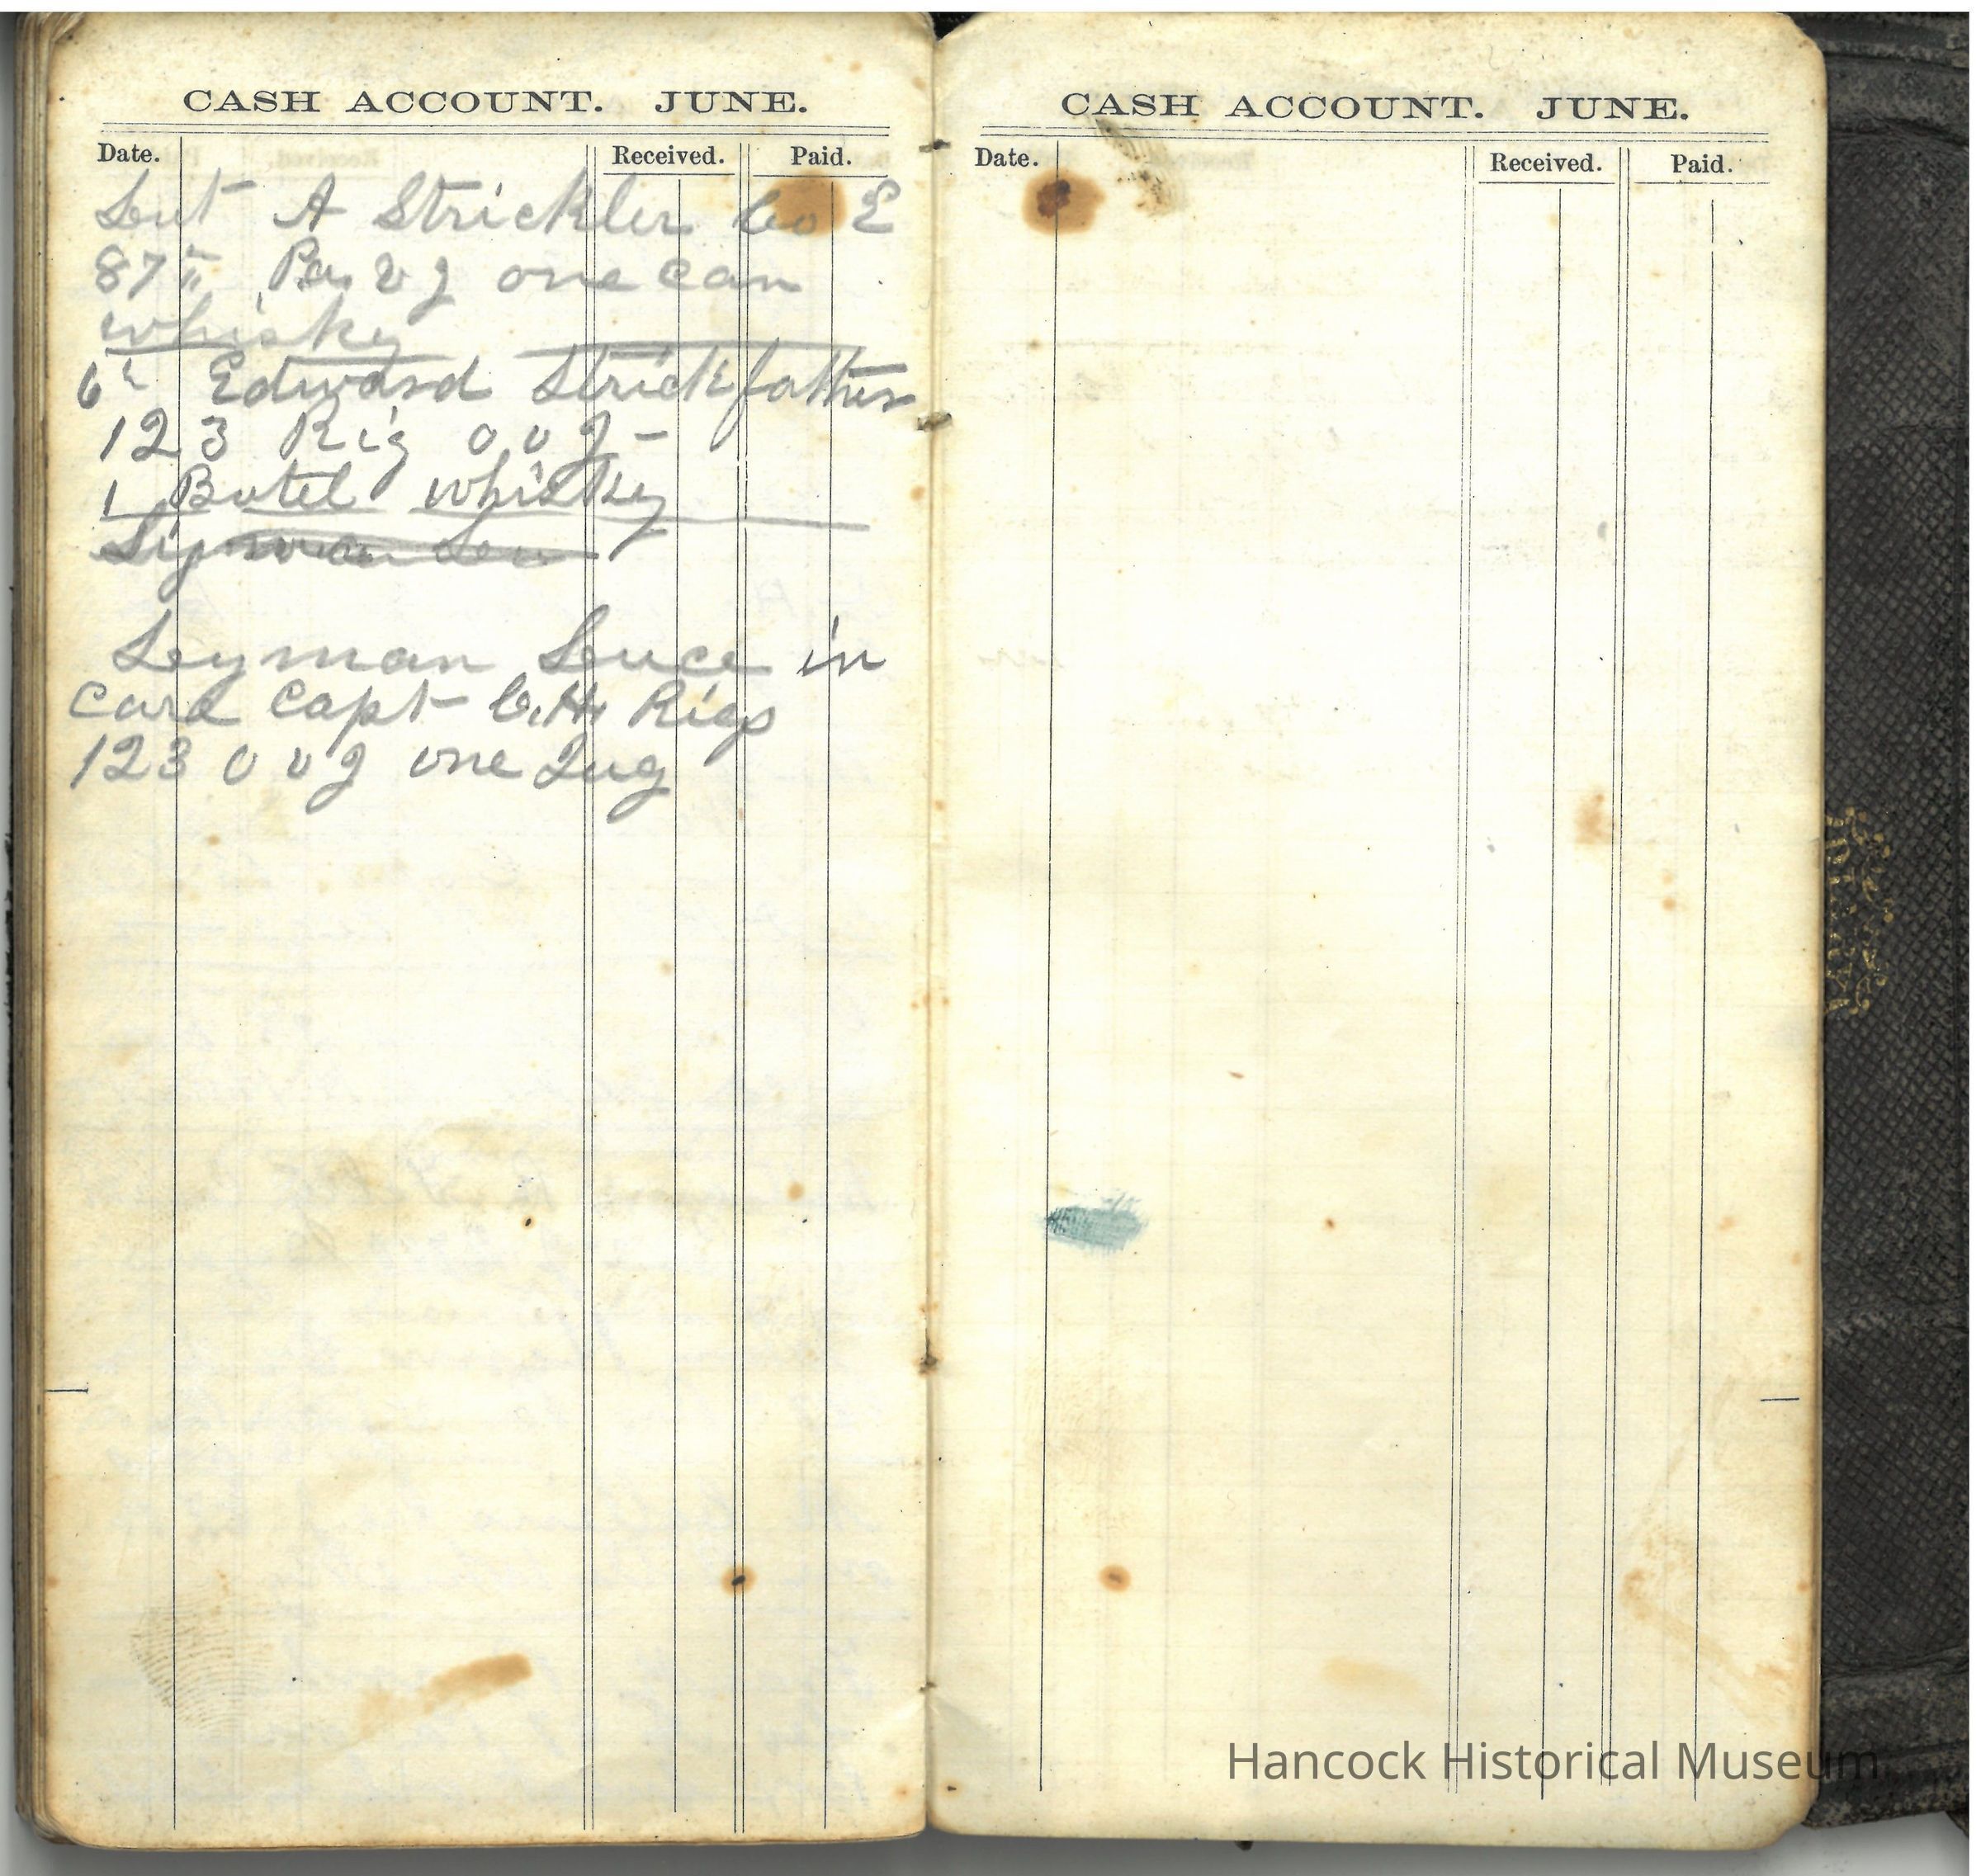 CASH ACCOUNT. JUNE.
Date. Received. Paid.
Lut A Strickler Co E
87th Pa, V I one can
whisky
6th Edward Strickfather
123 Rig O V I -
1 Botel whisky
Leyman Luce in
card Capt C. H. Rigs
123 O V I one Jug
CASH ACCOUNT. JUNE.
Date. Received. Paid.
Hancock Historical Museum